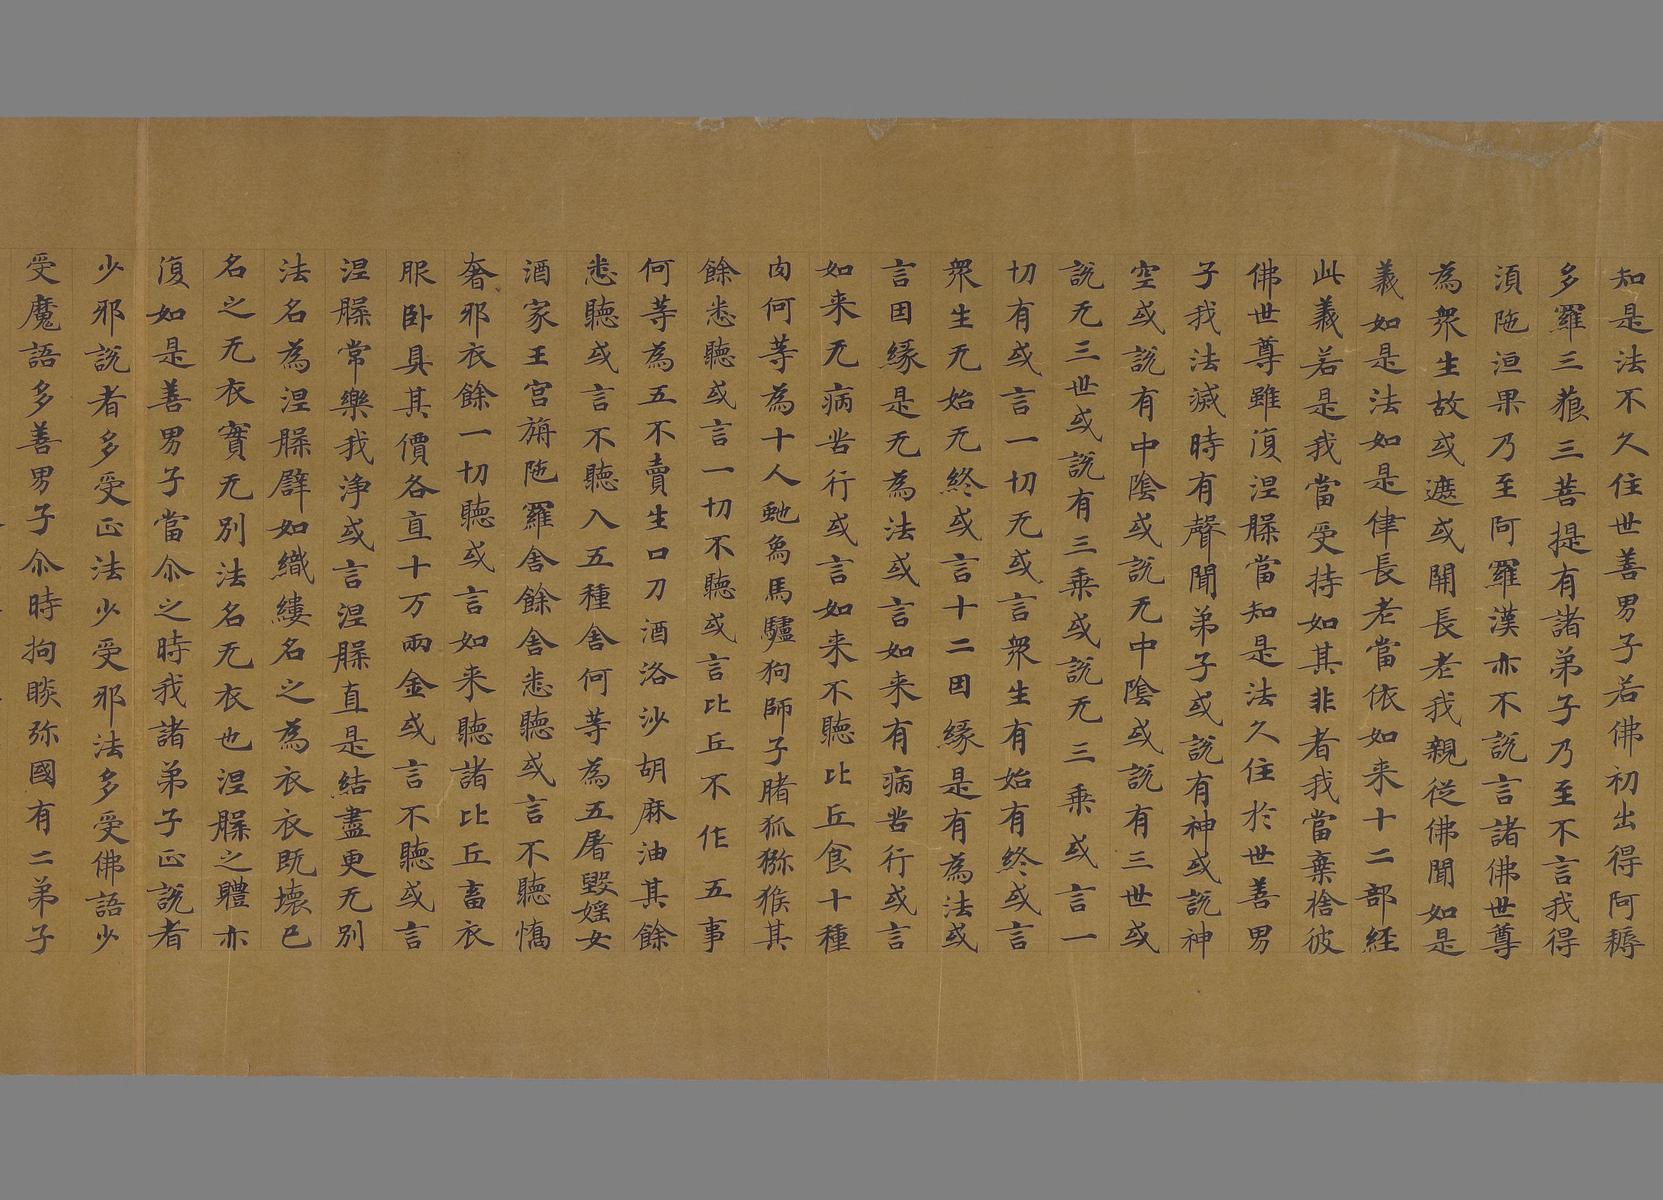 知是法不久住世善男子若佛初出得阿耨
多羅三藐三菩提有諸弟子乃至不言我得
須陁洹果乃至阿羅漢亦不說言諸佛世尊
為眾生故或遮或開長老我親從佛聞如是
義如是法如是律長老當依如来十二部経
此義若是我當受持如其非者我當棄捨彼
佛世尊雖復涅槃當知是法久住於世善男
子我法滅時有聲聞弟子或說有神或說神
空或說有中陰或說无中陰或說有三世或
說无三世或說有三乗或說无三乗或言一
切有或言一切无或言眾生有始有終或言
眾生无始无終或言十二因緣是有為法或
言因緣是无為法或言如来有病苦行或言
如来无病苦行或言如来不聽比丘食十種
肉何等為十人虵烏馬驢狗師子猪狐獼猴其
餘悉聽或言一切不聽或言比丘不作五事
何等為五不賣生口刀酒洛沙胡麻油其餘
悉聽或言不聽入五種舍何等為五屠毀婬女
酒家王宮旃陁羅舍餘舍悉聽或言不聽憍
奢邪衣餘一切聽或言如来聽諸比丘畜衣
服卧具其價各直十万兩金或言不聽或言
涅槃常樂我浄或言涅槃直是結盡更无別
法名為涅槃辟如織縷名之為衣衣既壞已
名之无衣實无別法名无衣也涅槃之體亦
復如是善男子當尒之時我諸弟子正說者
少邪說者多受正法少受邪法多受佛語少
受魔語多善男子尒時拘睒弥國有二弟子